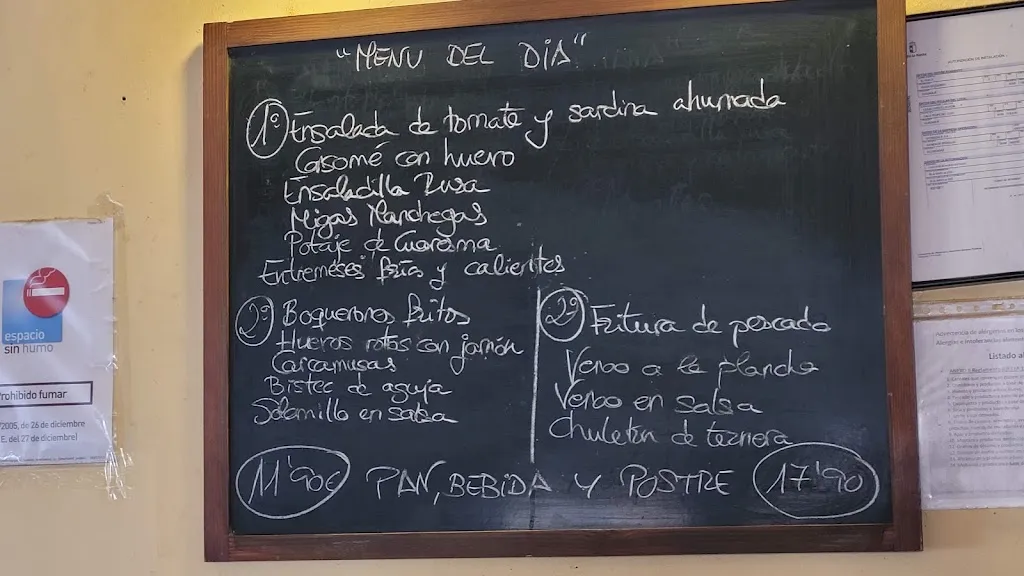 "MENU DEL DIA"
1º Ensalada de tomate y sardina ahumada
Consomé con huevo
Ensaladilla Rusa
Migas Manchegas
Potaje de Cuaresma
Entremeses frios y calientes
2º Boquerones fritos
Huevos rotos con jamón
Carcamusas
Bistec de aguja
Solomillo en salsa
2º Fritura de pescado
Verso a la plancha
Verso en salsa
Chuletón de ternera
11'90€ PAN, BEBIDA Y POSTRE 17'90
espacio
sin humo
Prohibido fumar
/2005, de 26 de diciembre
E. del 27 de diciembre)
Listado al